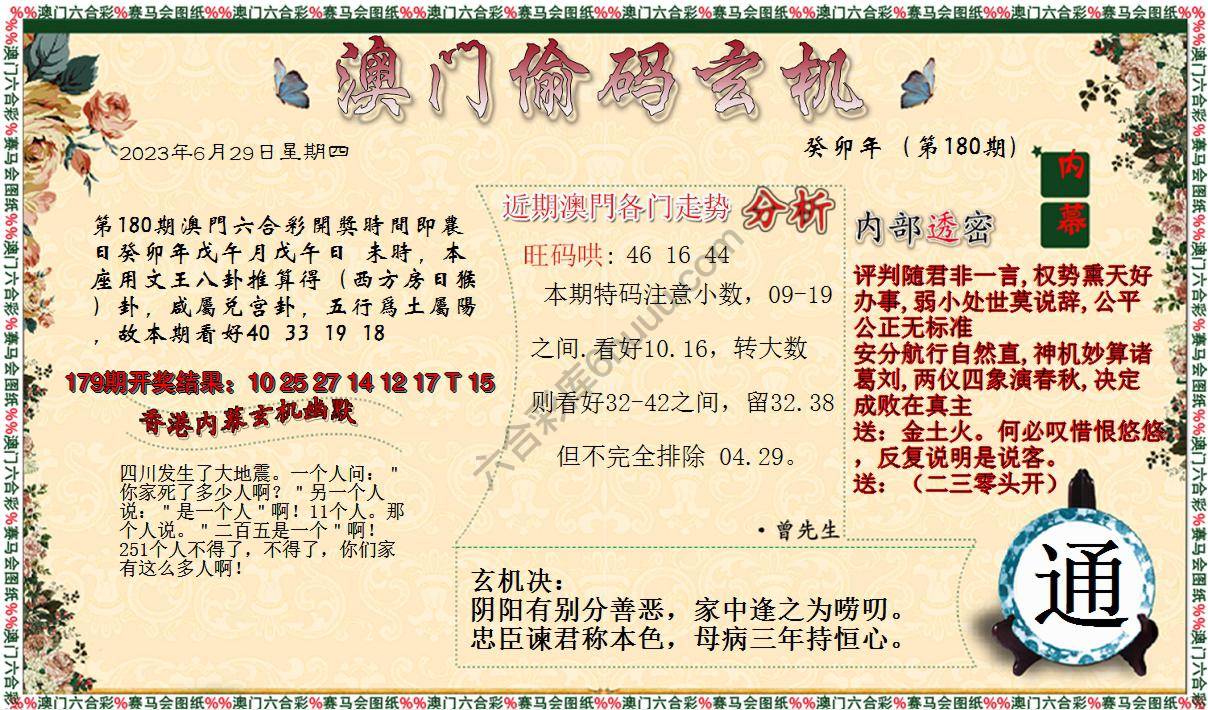 %%澳门六合彩%赛马会图纸%%澳门六合彩%赛马会图纸%%澳门六合彩%赛马会图纸%%澳门六合彩%赛马会图纸%%澳门六合彩%赛马会图纸%%澳门六合彩%赛马会图纸%%
澳门偷码玄机
2023年6月29日星期四
癸卯年（第180期）
内幕
第180期澳門六合彩開獎時間即農
日癸卯年戊午月戊午日 未時，本
座用文王八卦推算得（西方房日猴
）卦，咸屬兑宫卦，五行爲土屬陽
，故本期看好40 33 19 18
179期开奖结果：10 25 27 14 12 17 T 15
香港内幕玄机幽默
四川发生了大地震。一个人问："
你家死了多少人啊？"另一个人
说："是一个人"啊！11个人。那
个人说。"二百五是一个"啊！
251个人不得了，不得了，你们家
有这么多人啊！
近期澳門各门走势 分析
旺码哄：46 16 44
本期特码注意小数，09-19
之间.看好10.16，转大数
则看好32-42之间，留32.38
但不完全排除 04.29。
·曾先生
内部透密
评判随君非一言,权势熏天好
办事,弱小处世莫说辞,公平
公正无标准
安分航行自然直,神机妙算诸
葛刘,两仪四象演春秋,决定
成败在真主
送：金土火。何必叹惜恨悠悠
，反复说明是说客。
送：（二三零头开）
玄机决：
阴阳有别分善恶，家中逢之为唠叨。
忠臣谏君称本色，母病三年持恒心。
通
%%澳门六合彩%赛马会图纸%%澳门六合彩%赛马会图纸%%澳门六合彩%赛马会图纸%%澳门六合彩%赛马会图纸%%澳门六合彩%赛马会图纸%%澳门六合彩%赛马会图纸%%